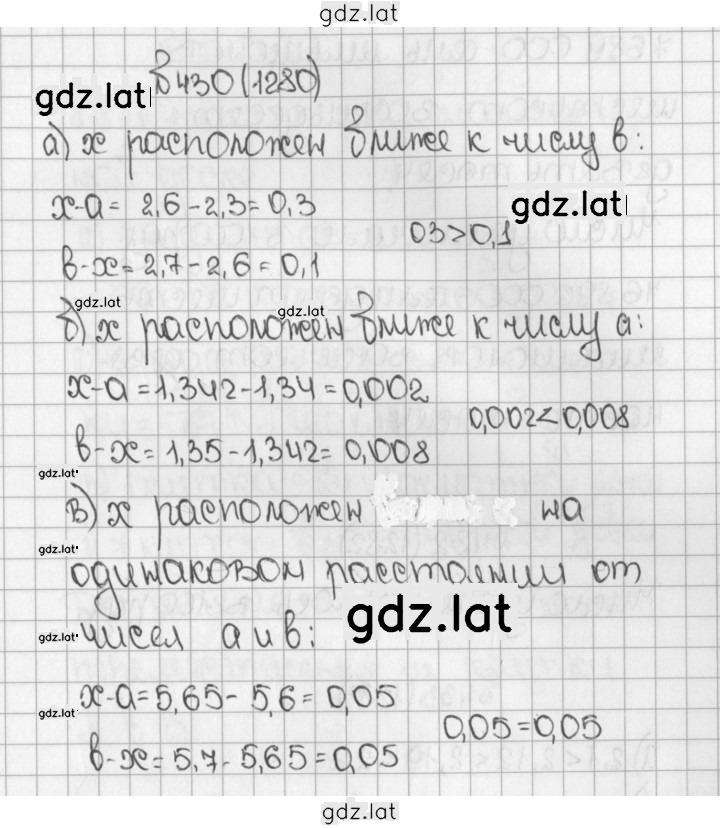 gdz.lat
№430(1280)
gdz.lat
а) x расположен ближе к числу в:
x-a= 2,6-2,3=0,3
gdz.lat
03>0,1
в-x=2,7-2,6=0,1
gdz.lat
gdz.lat
б) x расположен ближе к числу a:
x-a=1,342-1,34=0,002
0,002<0,008
в-x=1,35-1,342=0,008
gdz.lat
в) x расположен на
gdz.lat
одинаковом расстоянии от
gdz.lat
gdz.lat
чисел a и в:
x-a=5,65-5,6=0,05
gdz.lat
0,05=0,05
в-x=5,7-5,65=0,05
gdz.lat